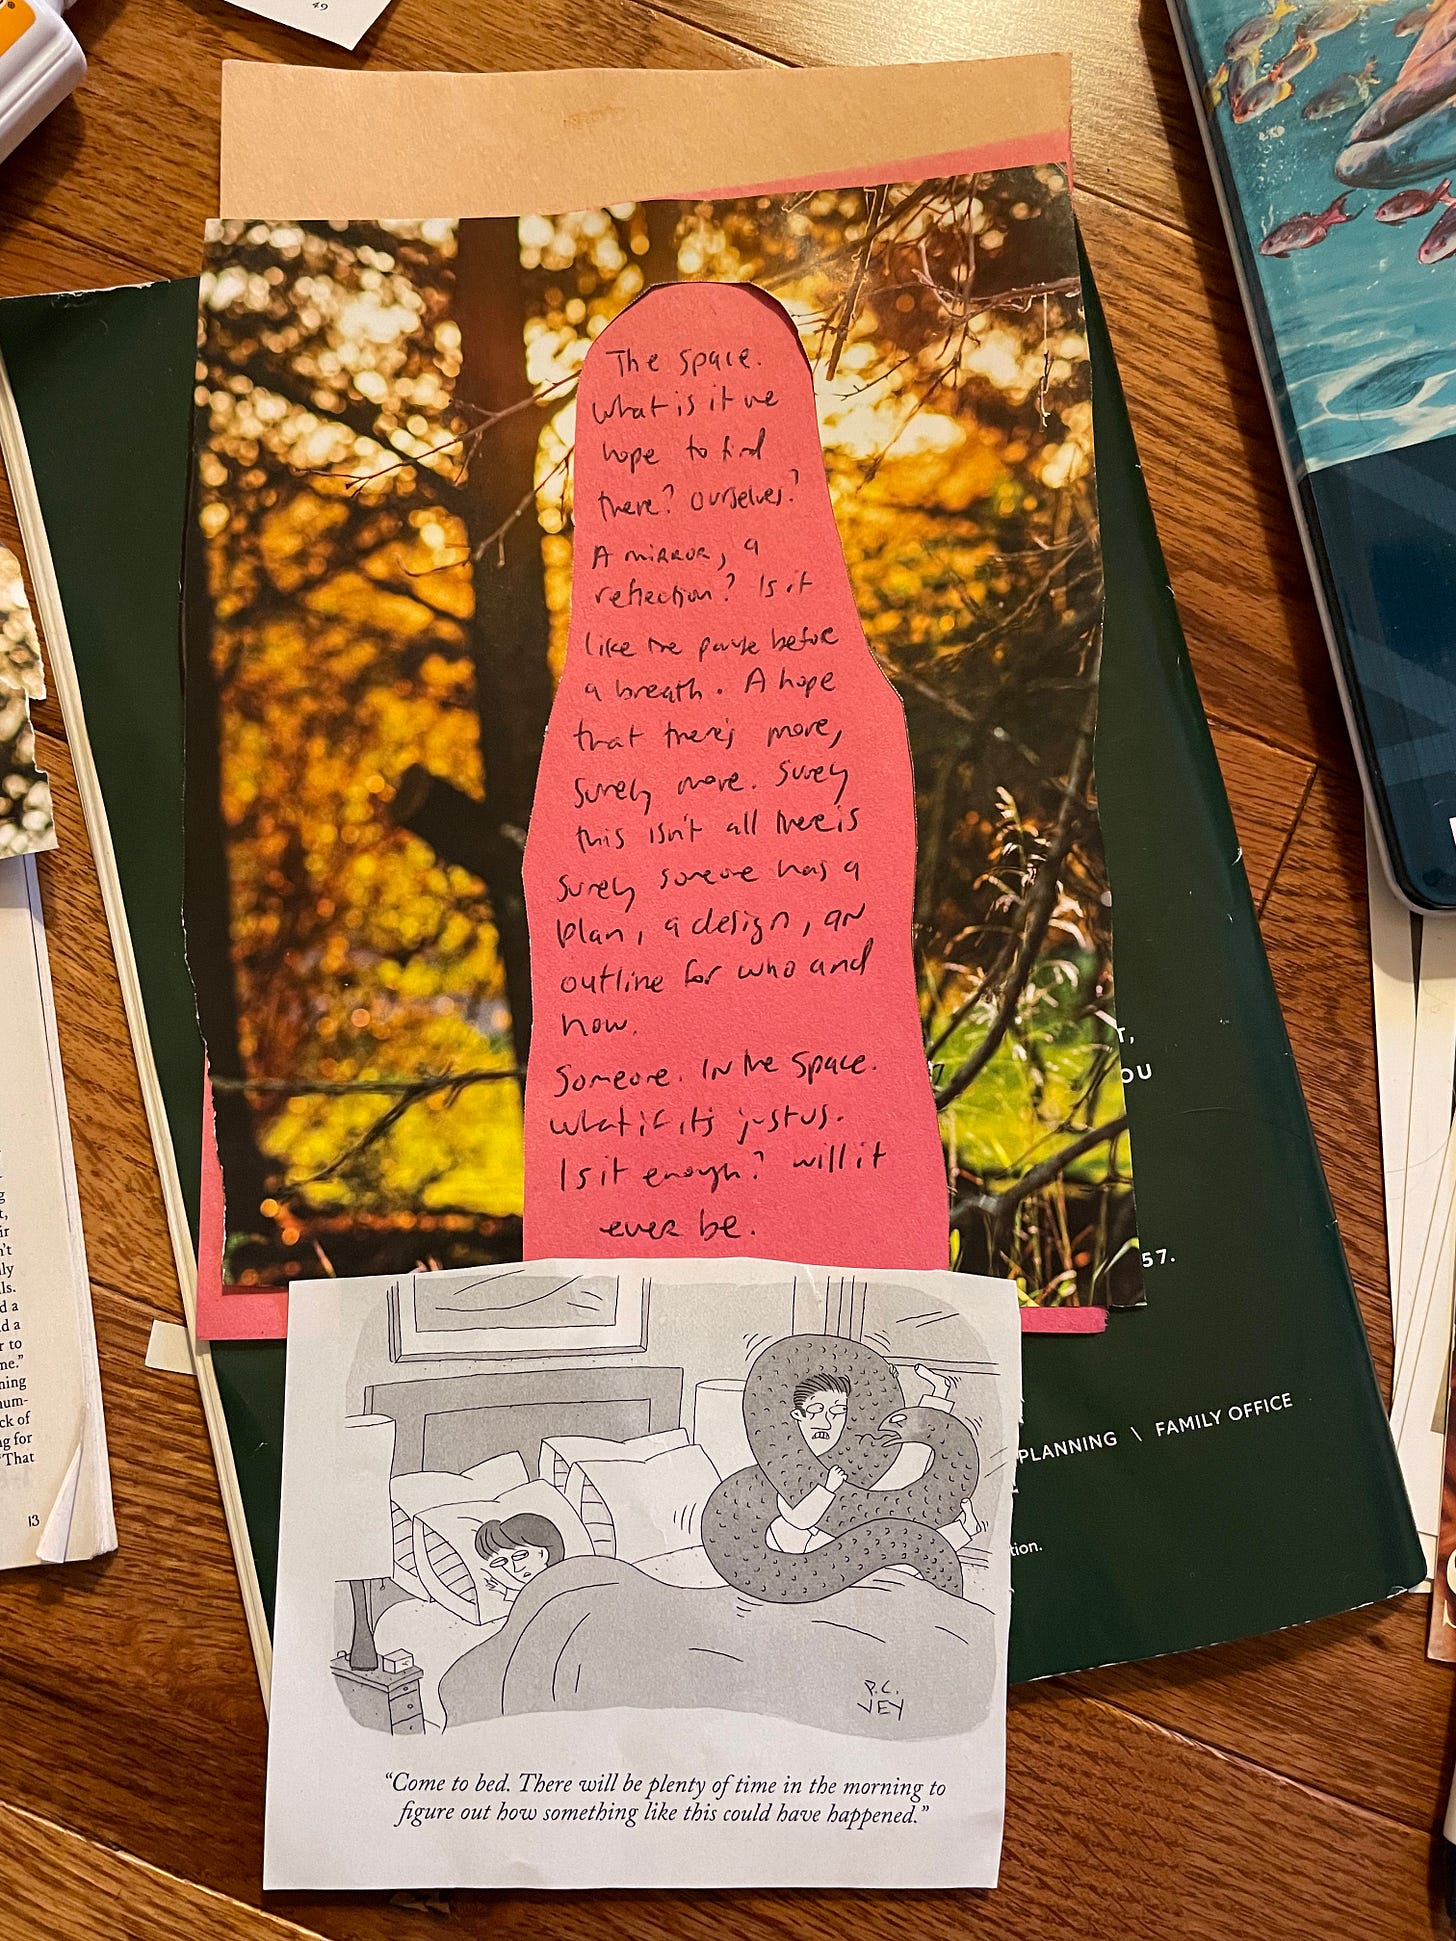 49
The space.
What is it we
hope to find
there? Ourselves?
A mirror, a
reflection? Is it
like the pause before
a breath. A hope
that there's more,
surely more. Surely
this isn't all there is
surely someone has a
plan, a design, an
outline for who and
how.
Someone. In the space.
What if it's just us.
Is it enough? Will it
ever be.
T,
OU
57.
PLANNING \ FAMILY OFFICE
tion.
g
t,
ir
n't
ly
ls.
d a
d a
r to
ne."
ning
num-
ck of
g for
"That
13
P.C.
VEY
"Come to bed. There will be plenty of time in the morning to
figure out how something like this could have happened."